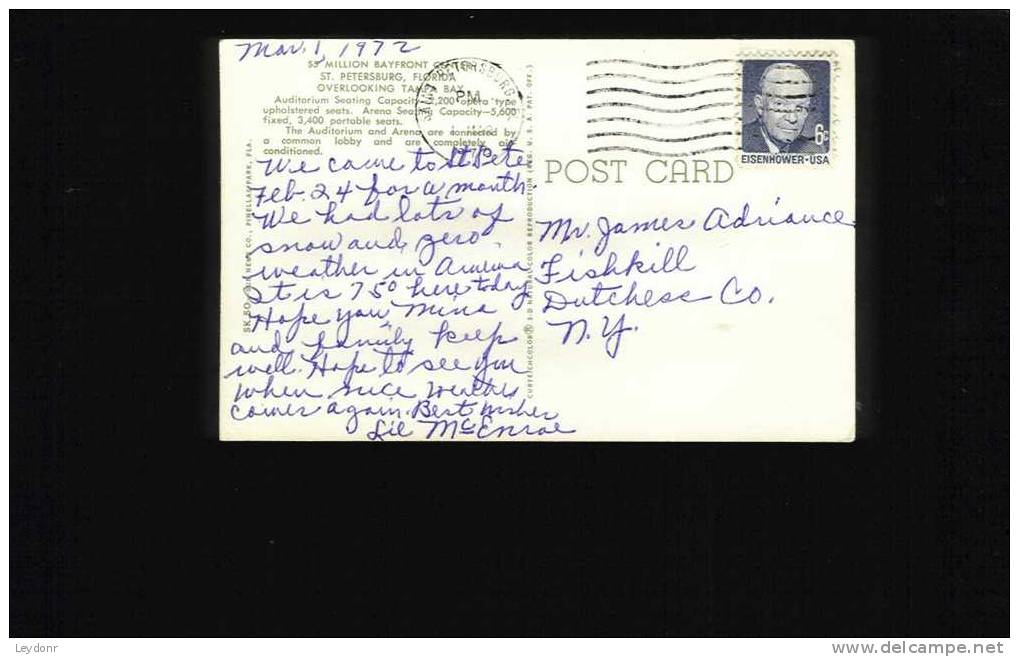 Mar. 1, 1972
$5 MILLION BAYFRONT CENTER
ST. PETERSBURG, FLORIDA
OVERLOOKING TAMPA BAY
Auditorium Seating Capacity—2,200 opera type
upholstered seats. Arena Seating Capacity—5,600
fixed, 3,400 portable seats.
The Auditorium and Arena are connected by
a common lobby and are completely air
conditioned.
We came to St Pete
Feb. 24 for a month.
We had lots of
snow and zero
weather in
It is 75° here today
Hope you Mina
and family keep
well. Hope to see you
when nice weather
comes again. Best wishes
Lil McEnroe
SAINT PETERSBURG
PM
6¢
EISENHOWER·USA
POST CARD
Mr. James Adriance
Fishkill
Dutchess Co.
N.Y.
CURTEICHCOLOR® 3-D NATURAL COLOR REPRODUCTION (REG. U.S.A. PAT. OFF.)
NEWS CO., PINELLAS PARK, FLA.
Leydonr
www.delcampe.net